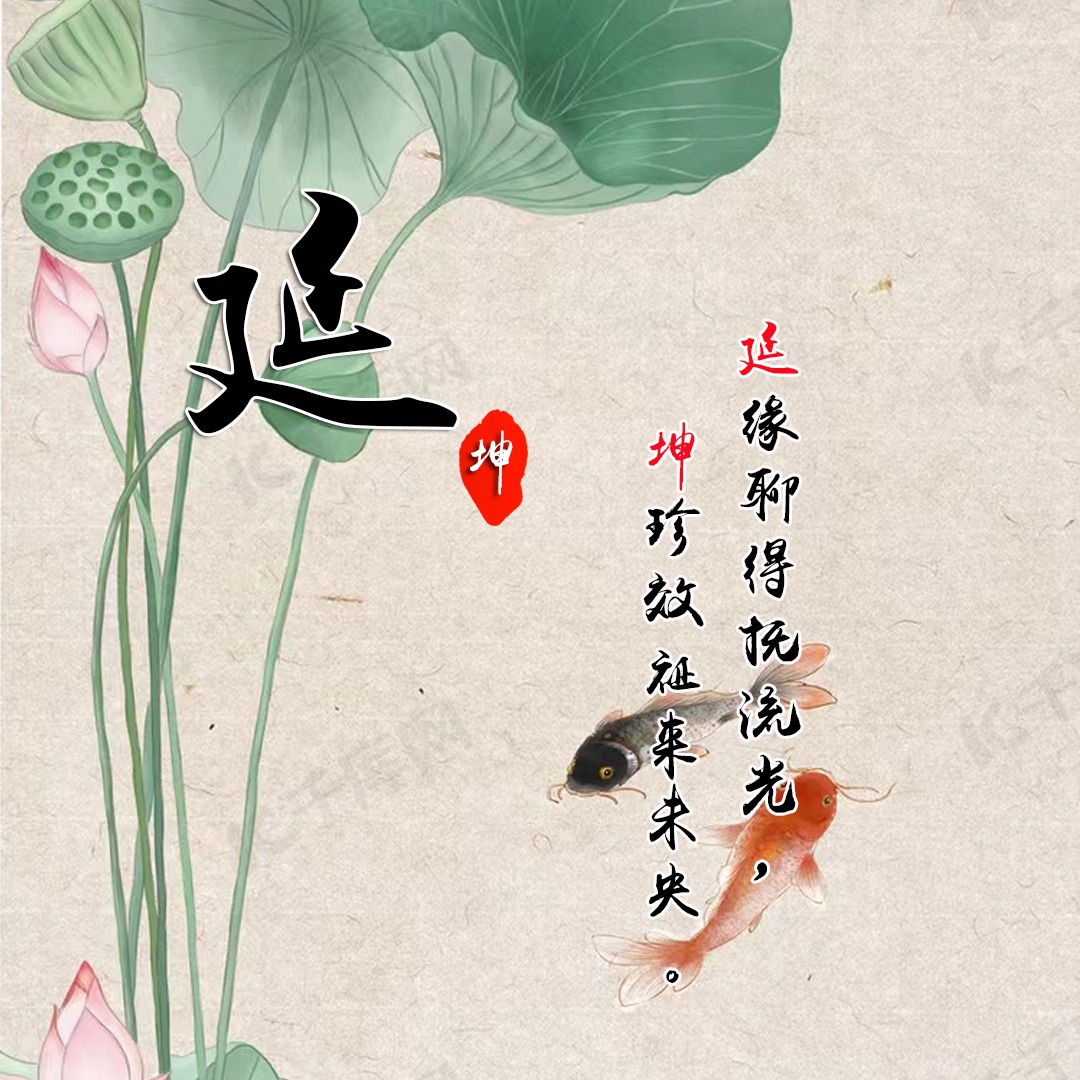 延
坤
延缘聊得抚流光，
坤珍效祖来未央。